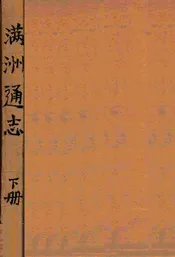 满洲通志
下册